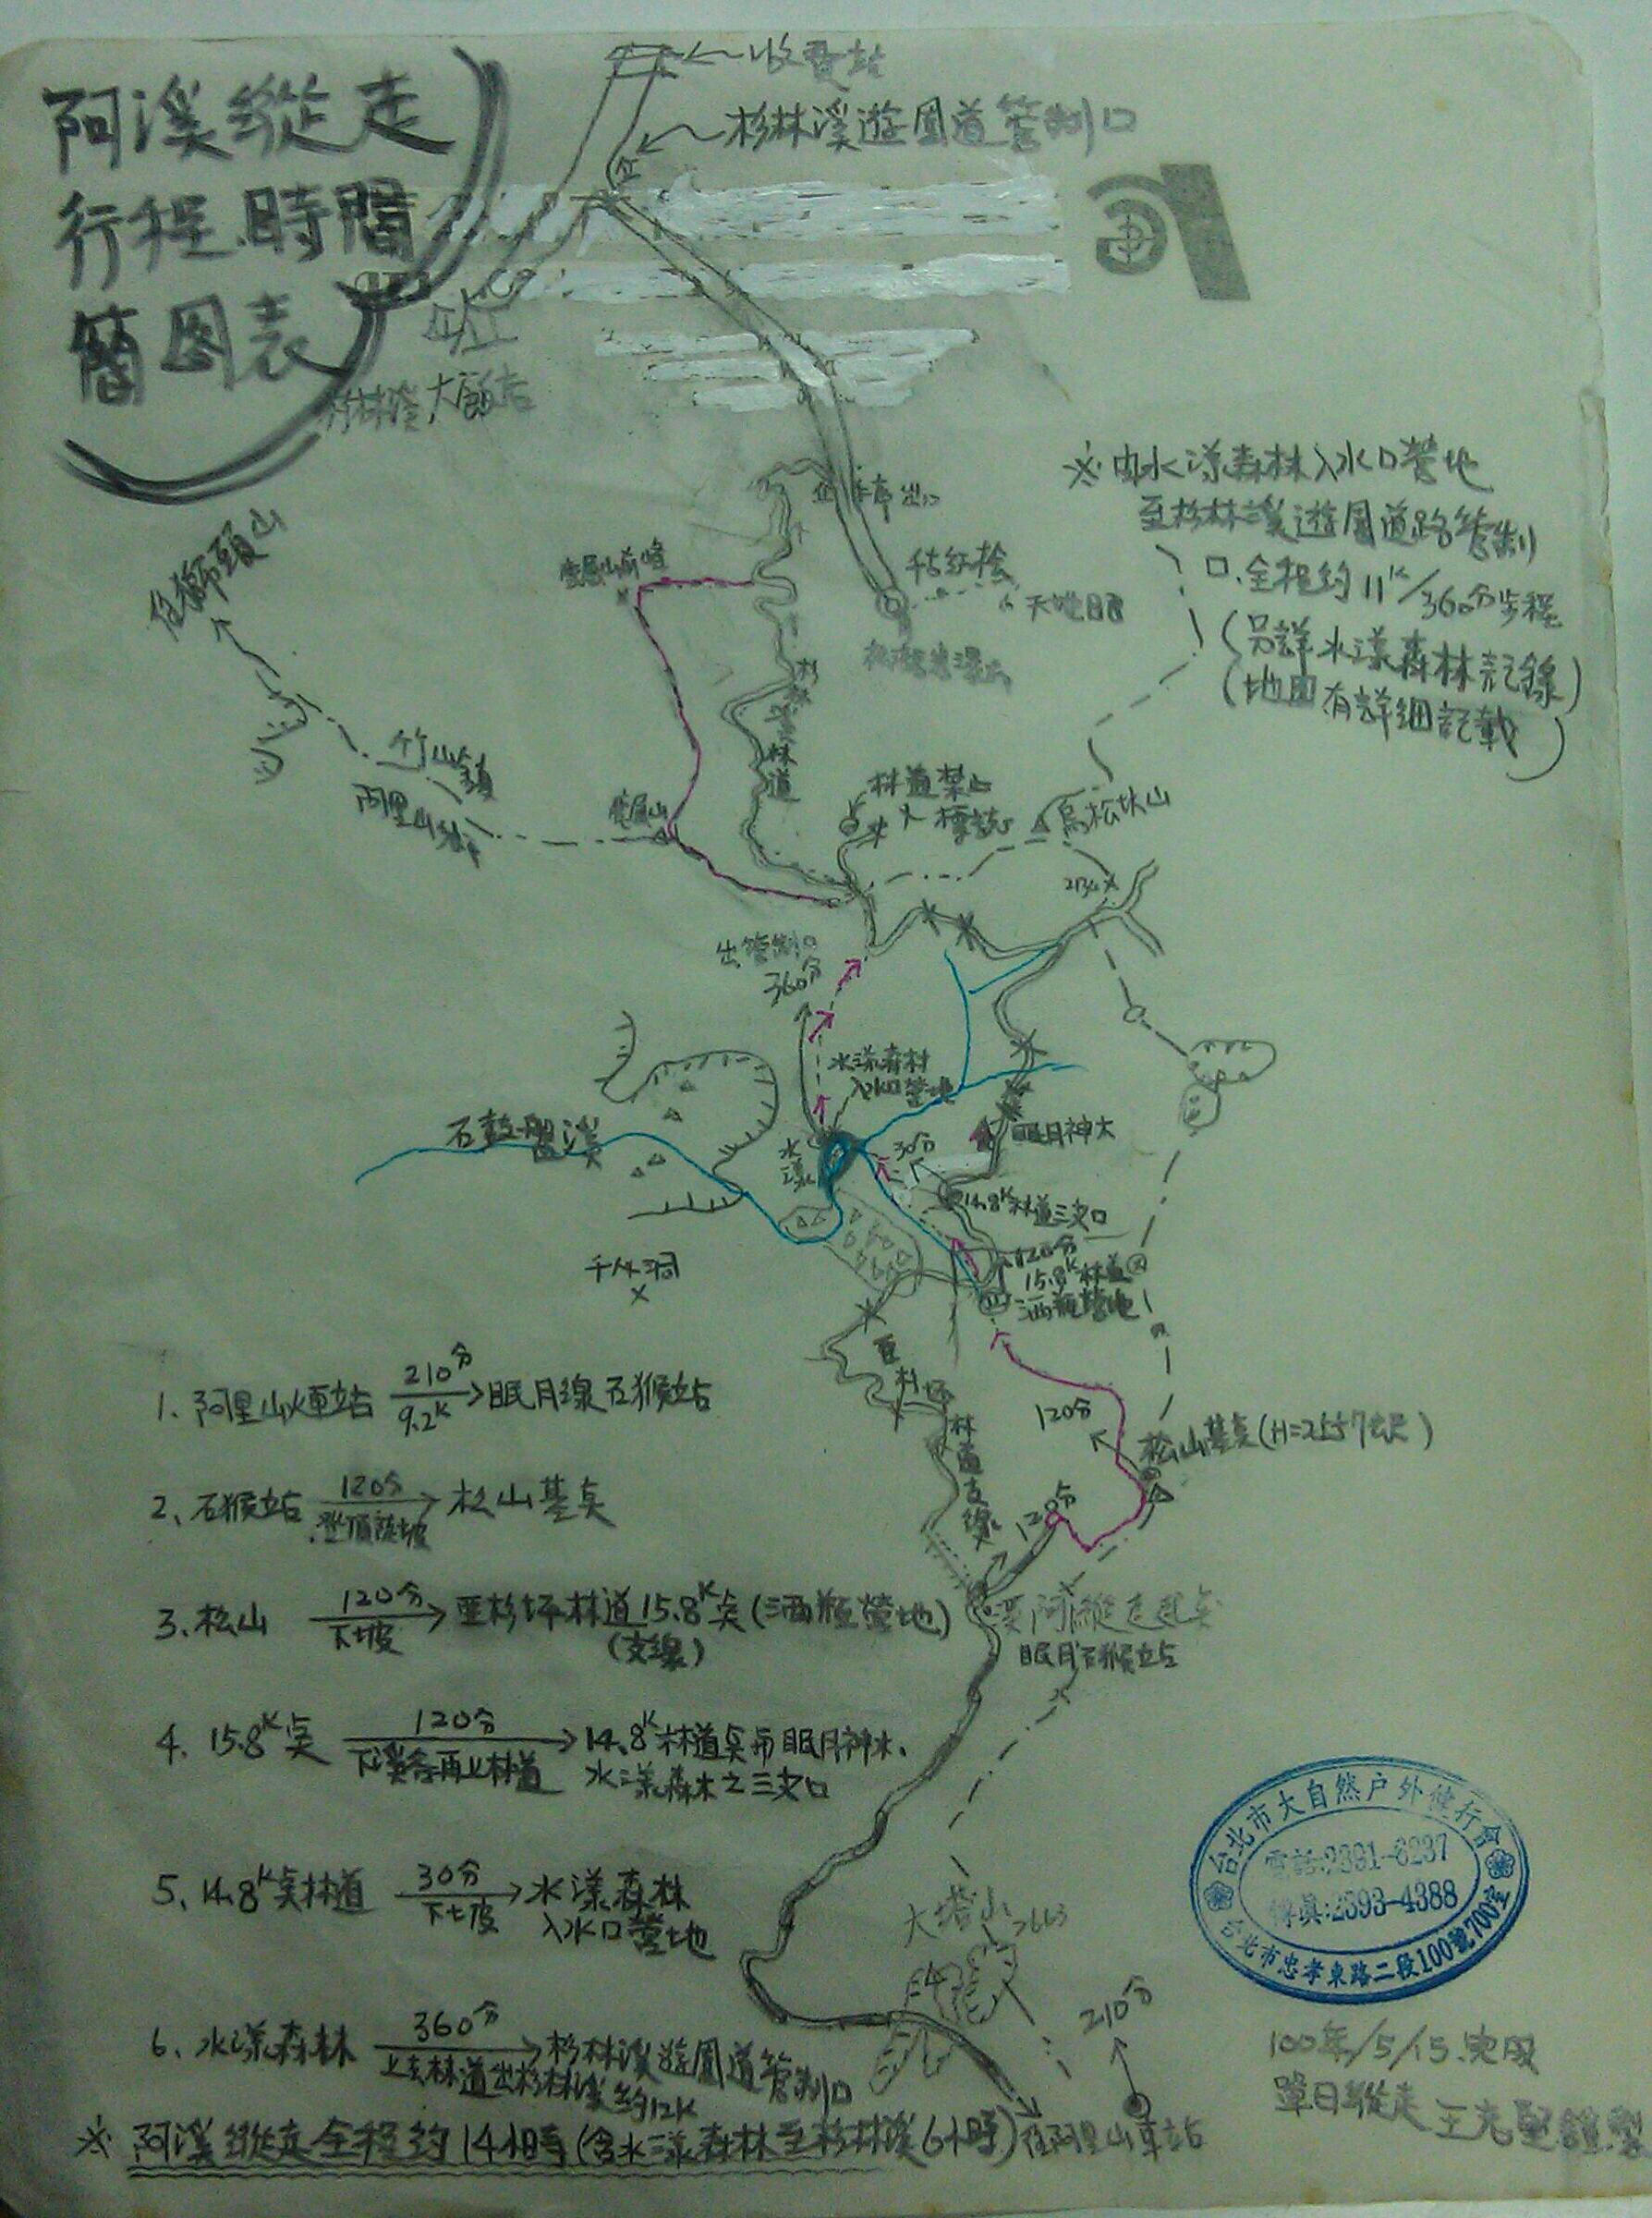 阿溪縱走
行程.時間
簡图表
←收費站
杉林溪遊園道管制口
杉林溪大飯店
※由水漾森林入水口營地
至杉林溪遊園道路管制
口.全程約11K/360分步程
(另詳水漾森林記錄)
(地圖有詳細記載)
往獅頭山
竹山鎮
阿里山鄉
鹿屈山前峰
鹿屈山
天地眼
林道
林道禁止
火標誌
鳥松坑山
出管制口
360分
水漾森林
入水口營地
石鼓盤溪
水漾
30分
眠月神木
14.8K林道三叉口
120分
15.8K林道
酒瓶營地
千人洞
×
至杉坪林道支線
120分
松山基点(H=2557公尺)
120分
溪阿縱走起点
眠月石猴站
大塔山
2663
210分
往阿里山車站
1. 阿里山火車站 210分 9.2K → 眠月線石猴站
2、石猴站 120分 登頂陡坡 → 松山基点
3、松山 120分 下坡 → 至杉坪林道15.8K点(酒瓶營地)
(支線)
4. 15.8K点 120分 下溪谷再上林道 → 14.8K林道点与眠月神木、
水漾森木之三叉口
5、14.8K点林道 30分 下坡 → 水漾森林
入水口營地
6、水漾森林 360分 上去林道出杉林溪約12K → 杉林溪遊園道管制口
※阿溪縱走全程約14小時(含水漾森林至杉林溪6小時)
台北市大自然户外健行會
電話:2391-6237
傳真:2393-4388
台北市忠孝東路二段100號700室
100年/5/15.完成
單日縱走